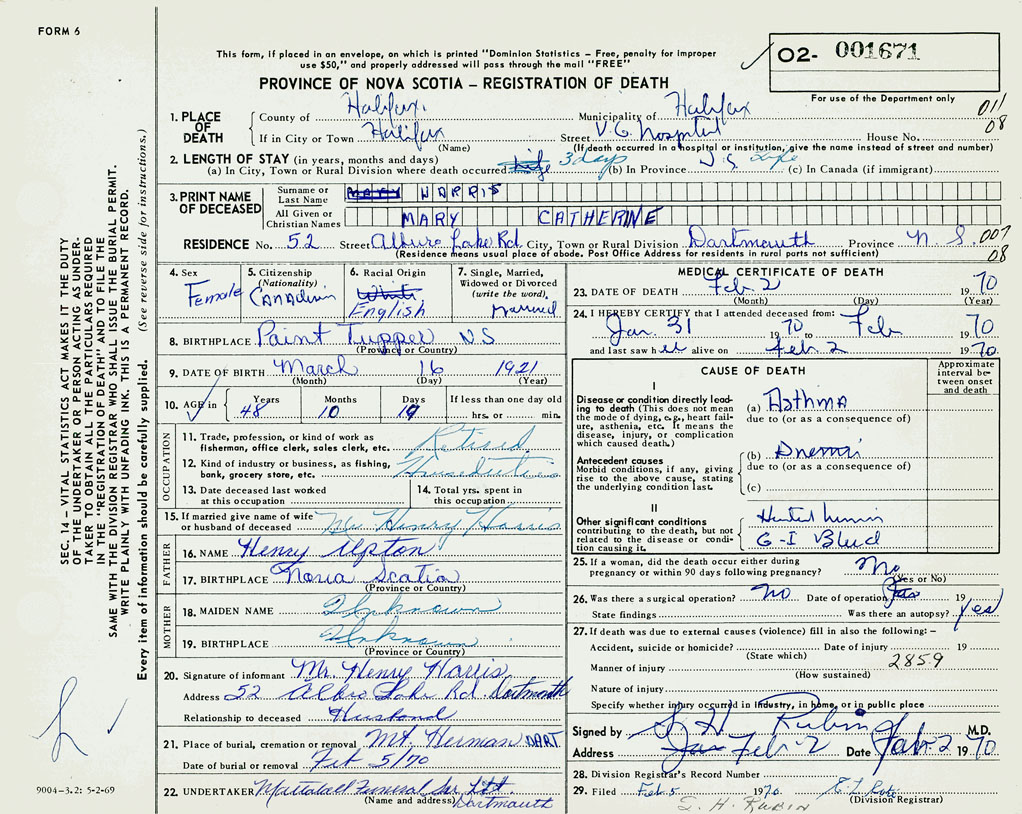 FORM 6
This form, if placed in an envelope, on which is printed "Dominion Statistics – Free, penalty for improper
use $50," and properly addressed will pass through the mail "FREE"
O2- 001671
PROVINCE OF NOVA SCOTIA – REGISTRATION OF DEATH
For use of the Department only
011
08
1. PLACE OF DEATH
County of Halifax. Municipality of Halifax
If in City or Town Halifax Street V.G. Hospital House No.
(Name) (If death occurred in a hospital or institution, give the name instead of street and number)
2. LENGTH OF STAY (in years, months and days)
(a) In City, Town or Rural Division where death occurred life 3 days (b) In Province Life (c) In Canada (if immigrant)
3. PRINT NAME OF DECEASED
Surname or Last Name MARY HARRIS
All Given or Christian Names MARY CATHERINE
RESIDENCE No. 52 Street Albro Lake Rd. City, Town or Rural Division Dartmouth Province N.S. 007
08
(Residence means usual place of abode. Post Office Address for residents in rural parts not sufficient)
4. Sex Female
5. Citizenship (Nationality) CANADIAN
6. Racial Origin White English
7. Single, Married, Widowed or Divorced (write the word) Married
8. BIRTHPLACE Point Tupper N.S
(Province or Country)
9. DATE OF BIRTH March 16 1921
(Month) (Day) (Year)
10. AGE in Years 48 Months 10 Days 19 If less than one day old hrs. or min.
OCCUPATION
11. Trade, profession, or kind of work as fisherman, office clerk, sales clerk, etc. Retired
12. Kind of industry or business, as fishing, bank, grocery store, etc. Housedutties
13. Date deceased last worked at this occupation
14. Total yrs. spent in this occupation
15. If married give name of wife or husband of deceased Mr. Henry Harris
FATHER
16. NAME Henry Upton
17. BIRTHPLACE Nova Scotia
(Province or Country)
MOTHER
18. MAIDEN NAME Unknown
19. BIRTHPLACE Unknown
(Province or Country)
20. Signature of informant Mr. Henry Harris
Address 52 Albro Lake Rd. Dartmouth
Relationship to deceased Husband
21. Place of burial, cremation or removal Mt. Herman DART.
Date of burial or removal Feb 5/70
22. UNDERTAKER Mattatall Funeral Ser. Ltd.
(Name and address) Dartmouth
MEDICAL CERTIFICATE OF DEATH
23. DATE OF DEATH Feb. 2 1970
(Month) (Day) (Year)
24. I HEREBY CERTIFY that I attended deceased from:
Jan. 31 1970 to Feb 1970
and last saw her alive on Feb 2 1970.
CAUSE OF DEATH
Approximate interval between onset and death
I
Disease or condition directly leading to death (This does not mean the mode of dying, e.g., heart failure, asthenia, etc. It means the disease, injury, or complication which caused death.)
(a) Asthma
due to (or as a consequence of)
Antecedent causes
Morbid conditions, if any, giving rise to the above cause, stating the underlying condition last.
(b)
due to (or as a consequence of)
(c)
II
Other significant conditions contributing to the death, but not related to the disease or condition causing it.
G-I Bleed
25. If a woman, did the death occur either during pregnancy or within 90 days following pregnancy? No
(Yes or No)
26. Was there a surgical operation? No Date of operation 19
State findings Was there an autopsy? Yes
27. If death was due to external causes (violence) fill in also the following: –
Accident, suicide or homicide? Date of injury 19
(State which) 2859
Manner of injury
(How sustained)
Nature of injury
Specify whether injury occurred in Industry, in home, or in public place
Signed by S H Rubin M.D.
Address Feb 2 Date Feb 2 1970
28. Division Registrar's Record Number
29. Filed Feb 5 1970
(Division Registrar)
S. H. RUBIN
SEC. 14 – VITAL STATISTICS ACT MAKES IT THE DUTY
OF THE UNDERTAKER OR PERSON ACTING AS UNDER-
TAKER TO OBTAIN ALL THE PARTICULARS REQUIRED
IN THE "REGISTRATION OF DEATH" AND TO FILE THE
SAME WITH THE DIVISION REGISTRAR WHO SHALL ISSUE THE BURIAL PERMIT.
WRITE PLAINLY WITH UNFADING INK. THIS IS A PERMANENT RECORD.
Every item of information should be carefully supplied. (See reverse side for instructions.)
9004-3.2: 5-2-69